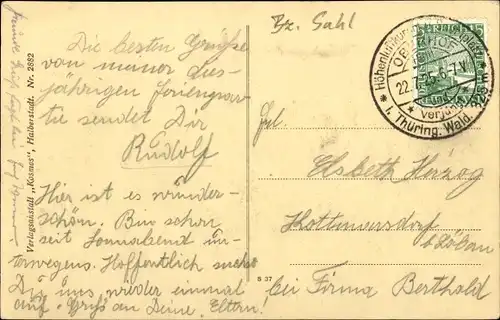 Bz. Sahl
Die besten Grüße
von meiner dies-
jährigen Ferienpar-
tie sendet Dir
Rudolf
Hier ist es wunder-
schön. Bin schon
seit Sonnabend un-
terwegens. Hoffentlich sucht
Du uns wieder einmal
auf. Gruß an Deine Eltern!
Verlagsanstalt „Kosmos", Halberstadt. Nr. 2882
S 37
OBERHOF
22.7.25. 6-7 V.
verjüngt
i. Thüring. Wald.
825 m
Frl.
Elsbeth Herzog
Kottmarsdorf
b Löbau
bei Firma Berthold